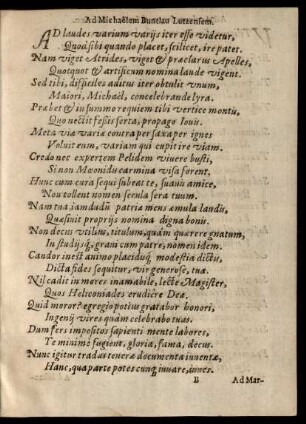 Ad Michaëlem Bunelau Luzzensem.
AD laudes varium varijs iter esse videtur,
Quod sibi quando placet, scilicet, ire patet.
Nam viget Atrides, viget & præclarus Apelles,
Quotquot & artificum nomina laude vigent.
Sed tibi, difficiles aditus iter obtulit vnum,
Maiori, Michaël, concelebrande lyra.
Præbet & in summo requiem tibi vertice montis,
Quo nectit fessis serta, propago Iouis.
Meta viæ variæ contra per saxa per ignes
Voluit eum, variam qui cupit ire viam.
Credo nec expertem Peliden viuere busti,
Si non Mæonidu carmina visa forent.
Hunc cum cura sequi subeat te, suauis amice,
Nou tollent nomen secula sera tuum.
Nam tua iamdudum patria mens æmula laudis,
Quæsiuit proprijs nomina digna bonis.
Non decus vtilius, titulum, quàm quærere gnatum,
In studijsq́; grani cum patre, nomen idem.
Candor inest animo placidusq́; modestia dictis,
Dicta fides sequitur, vir generose, tua.
Nil cadit in mores inamabile, lecte Magister,
Quos Heliconiades erudiere Deæ.
Quid moror? egregio potius gratabor honori,
Ingenij vires quàm celebrabo tuas.
Dum fers impositos sapienti mente labores,
Te minimè fugient, gloria, fama, decus.
Nunc igitur tradas teneræ documenta iuuentæ,
Hanc, qua parte potes cunq́; iuuare, iuues.
B Ad Mar-